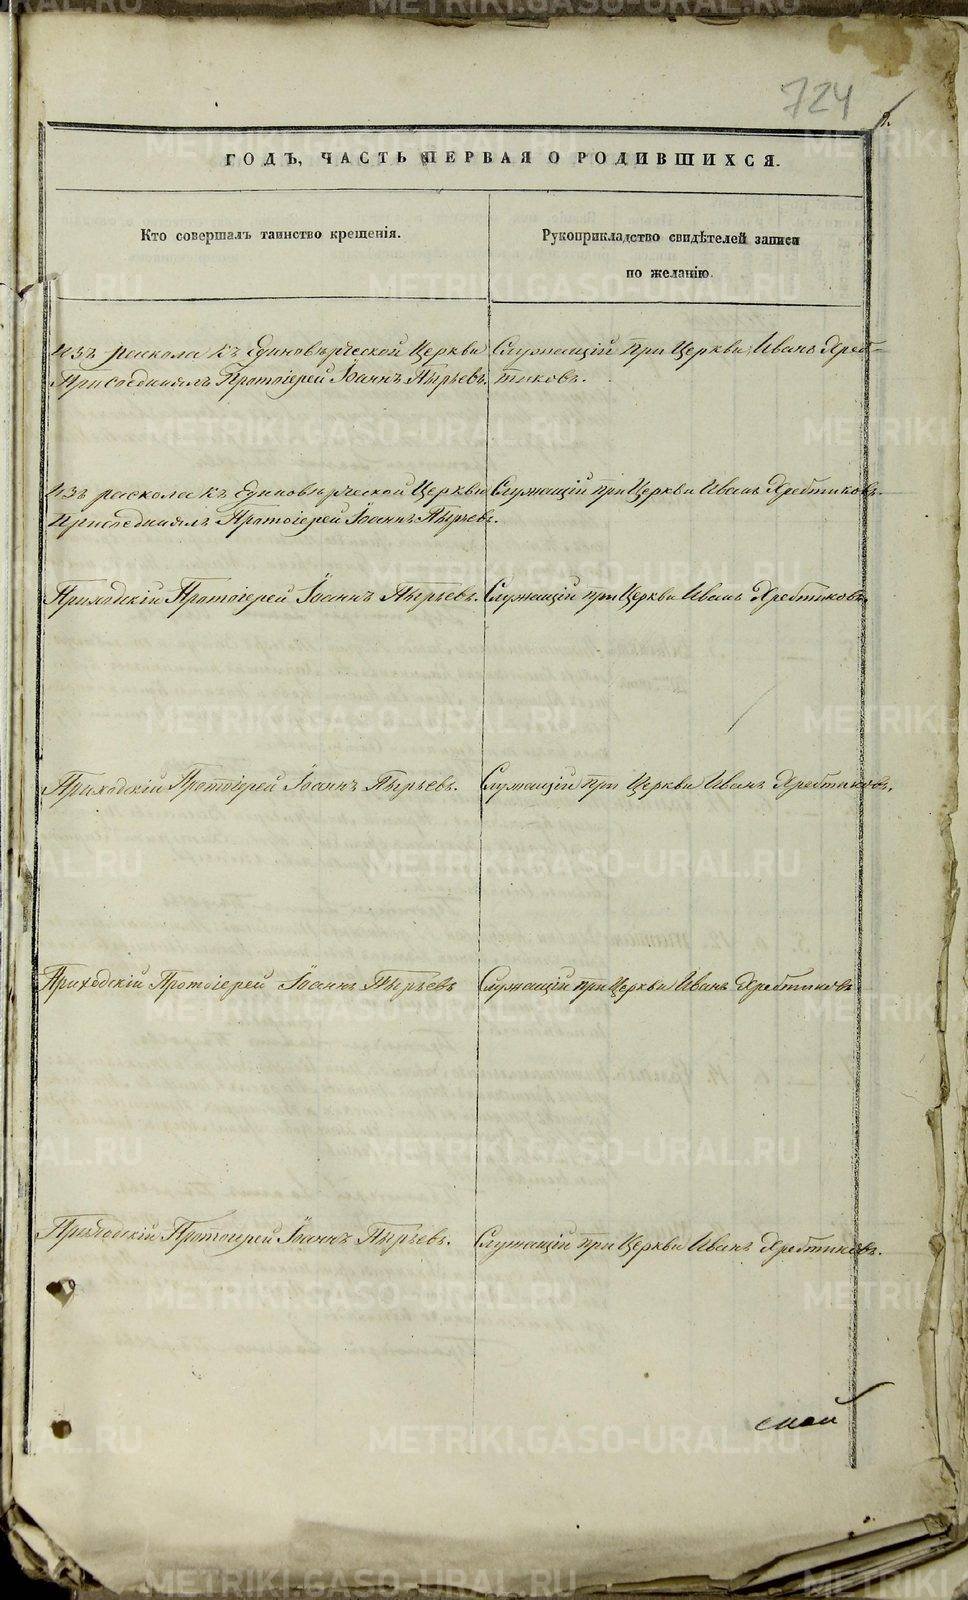 724
ГОДЪ, ЧАСТЬ ПЕРВАЯ О РОДИВШИХСЯ.
Кто совершалъ таинство крещенія.
Рукоприкладство свидѣтелей записи
по желанію.
изъ раскола къ Единовѣрческой Церкви
Присоединялъ Протоіерей Іоаннъ Пырьевъ.
Служащій при Церкви Иванъ Хреб-
тиковъ.
изъ раскола къ Единовѣрческой Церкви
Присоединялъ Протоіерей Іоаннъ Пырьевъ.
Служащій при Церкви Иванъ Хребтиковъ.
Приходскій Протоіерей Іоаннъ Пырьевъ.
Служащій при Церкви Иванъ Хребтиковъ.
Приходскій Протоіерей Іоаннъ Пырьевъ.
Служащій при Церкви Иванъ Хребтиковъ.
Приходскій Протоіерей Іоаннъ Пырьевъ
Служащій при Церкви Иванъ Хребтиковъ
Приходскій Протоіерей Іоаннъ Пырьевъ.
Служащій при Церкви Иванъ Хребтиковъ.
METRIKI.GASO-URAL.RU